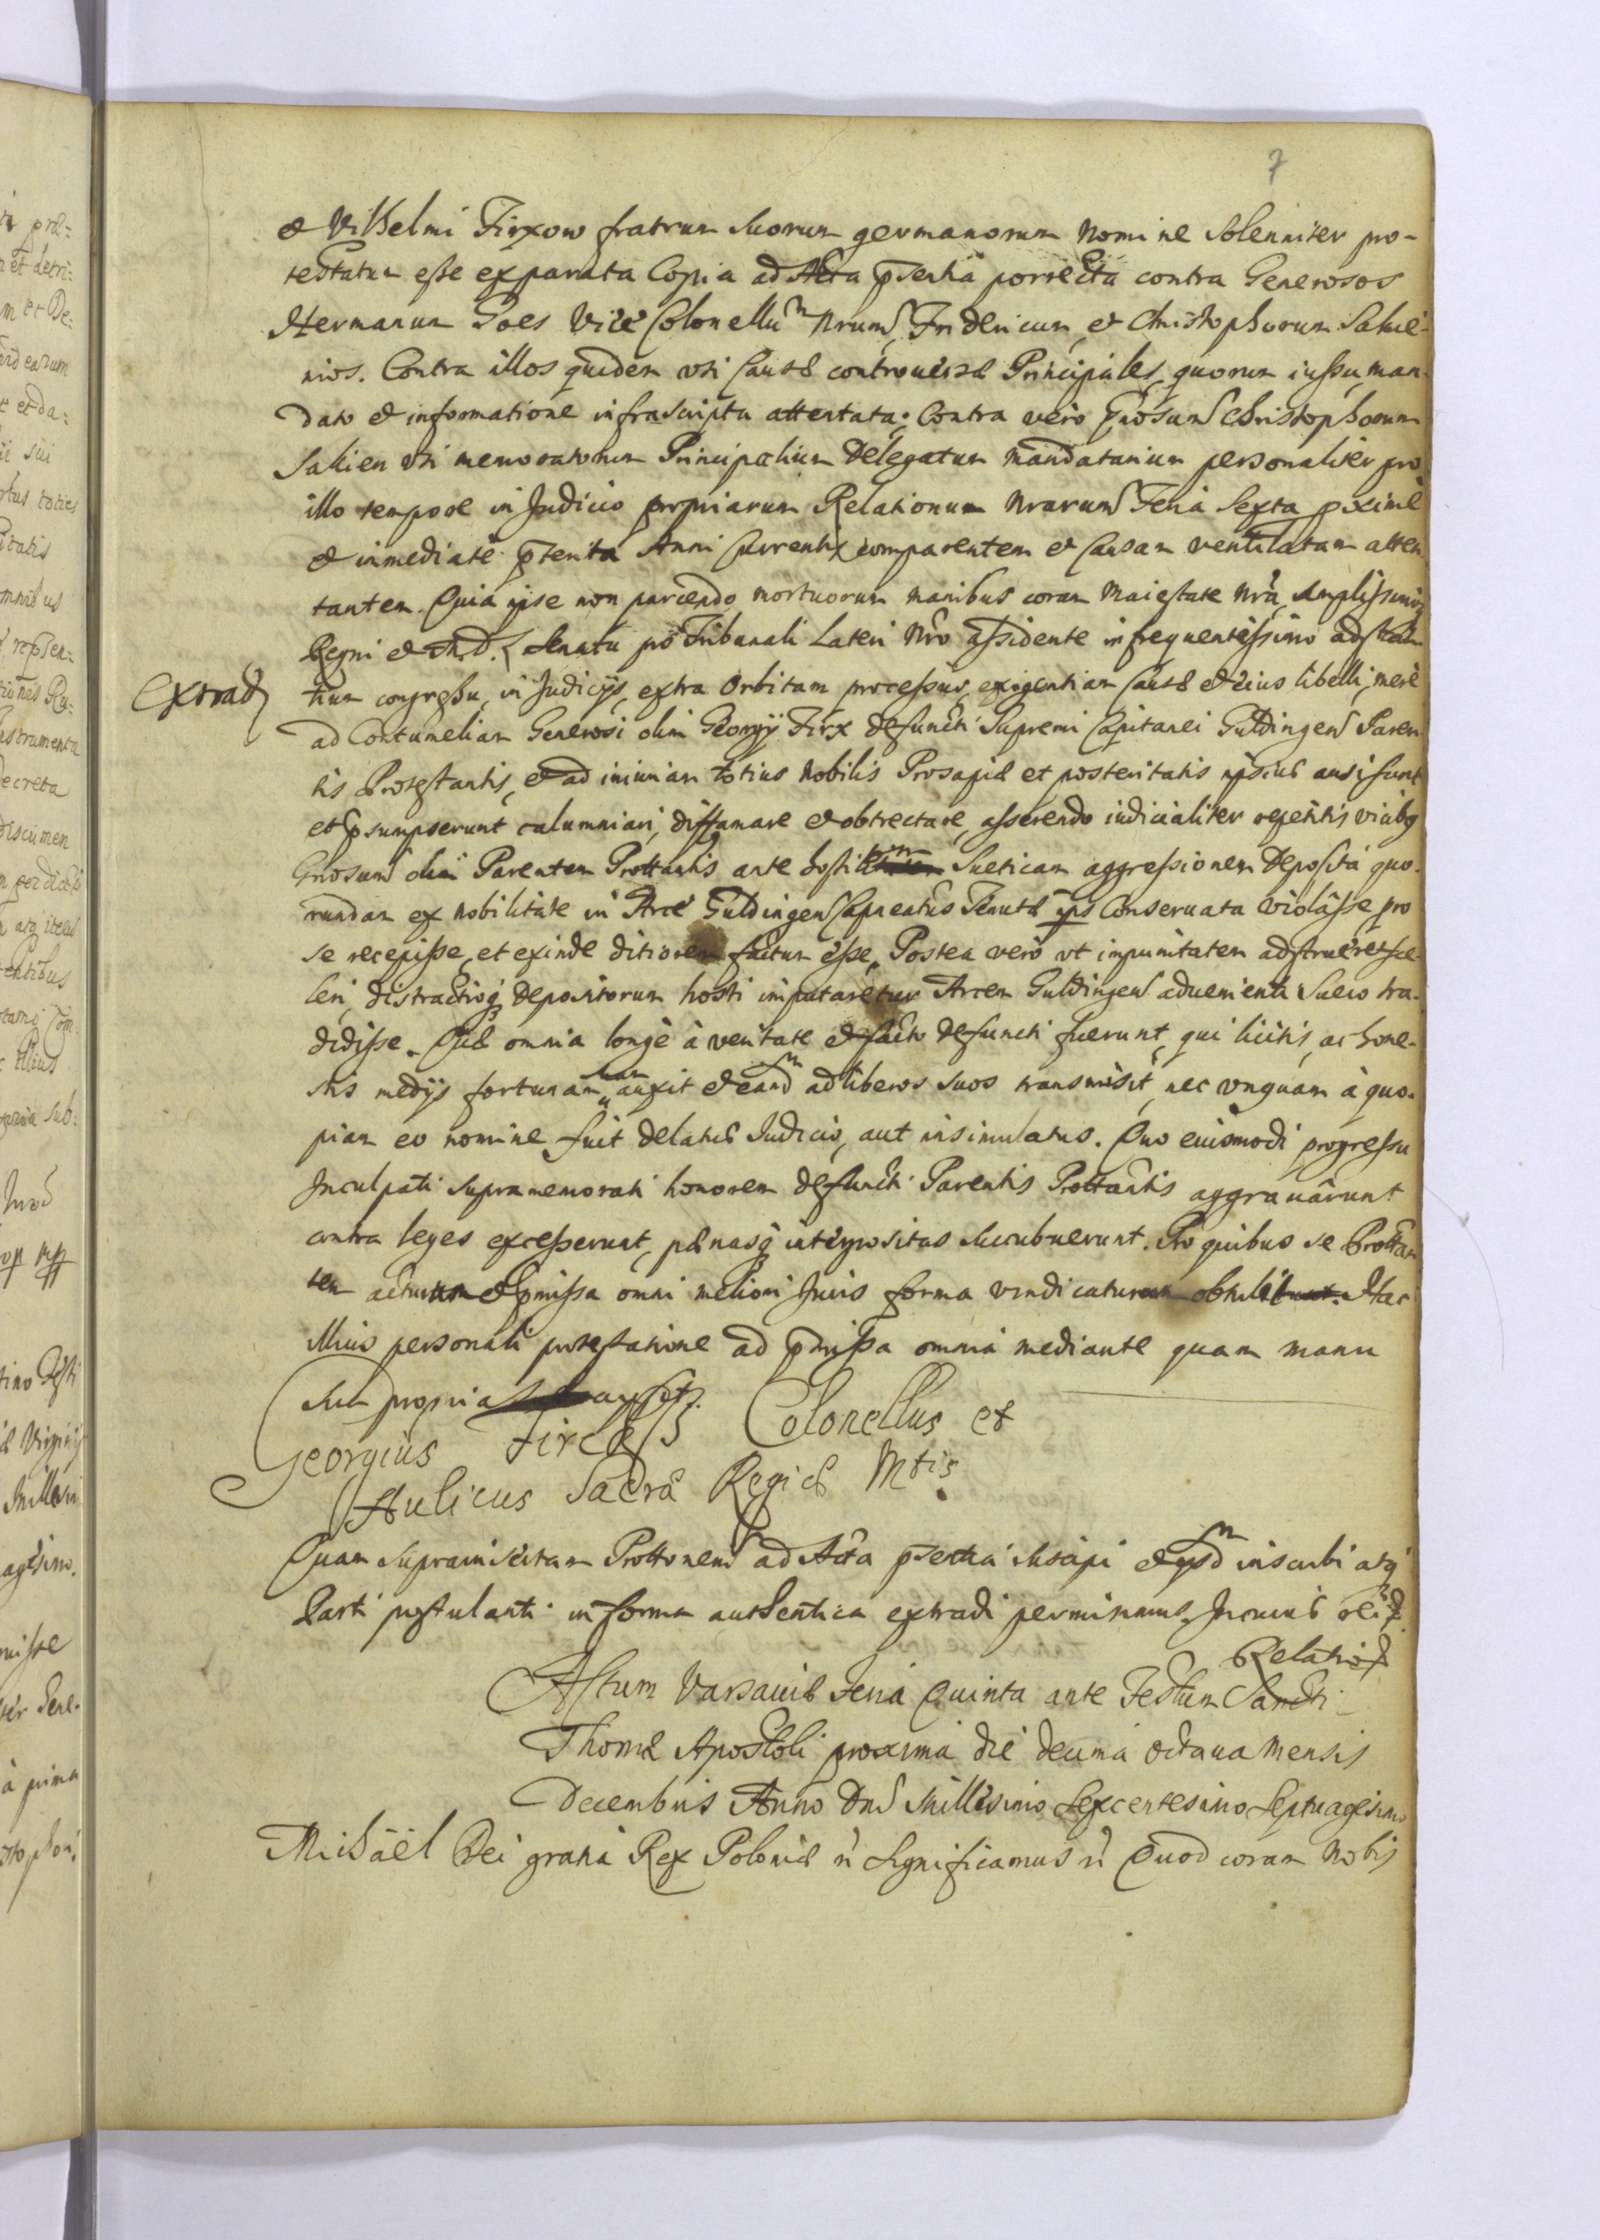 7
& Vilhelmi Firxow fratrum suorum germanorum nomine solenniter pro-
testatus esse ex parata Copia ad Acta psentia porrecta contra Generosos
Hermanum Goes Vice Colonellum Nrum, Fridericum, et Christophorum Sakie-
nios. Contra illos quidem vti Causæ controversæ Principales, quorum iussu, man-
dato & informatione infrascripta attentata; Contra vero Gnosum Christophorum
Sakien vti memoratorum Principalium Delegatum Mandatarium personaliter pro
illo tempore in Judicio propriarum Relationum Nrarum Feria Sexta pxime
& immediate pterita Anni Currentis comparentem et Causam ventilatam atten
tantem. Quia ipse non parcendo mortuorum manibus coram Maiestate Nra, Amplissimoq
Regni & M.D.L. Senatu pro Tribunali Lateri Nro assidente in frequentissimo adstan
Extrad
tium congressu, in Judicijs, extra orbitam processus, exigentiam Causæ & eius libelli, mere
ad Contumeliam Generosi olim Georgij Firx defuncti Supremi Capitanei Guldingen Paren
tis Protestantis, & ad iniuriam totius Nobilis Prosapiæ et posteritatis ipsius ausi sunt
et psumpserunt calumniari, diffamare & obtrectare, asserendo iudicialiter repetitis vicibq
Gnosum olim Parentem Prottantis ante hostilem Sueticam aggressionem Deposita quo-
rundam ex nobilitate in Arce Guldingen Capneatus Tenutæ ips Conservata violasse pro
se recepisse, et exinde ditiorem factum esse, Postea vero vt impunitatem adstrueret sce-
leri, distractioq Depositorum hosti imputaretur Arcem Guldingen advenienti Sueco tra-
didisse. Quæ omnia longe à veritate & facto defuncti fuerunt, qui licitis, ac hone-
stis medijs fortunam suam auxit & eandm ad liberos suos transmisit, nec vnquam à quo-
piam eo nomine fuit delatus Judicio, aut insimulatus. Quo eiusmodi progressu
Inculpati supramemorati honorem defuncti Parentis Prottantis aggravârunt
contra leges excesserunt, pænasq interpositas succubuerunt. Pro quibus se Prottan
tem acturum & pmissa omni meliori Juris forma vindicaturum obtulit. Hac
illius personali protestatione ad pmissa omnia mediante quam manu
sua propria
Georgius Fircks Colonellus et
Aulicus Sacræ Regiæ Mtis
Quam suprainsertam Prottonem ad Acta psentia suscipi & ipsdm inscribi atq
Parti postulanti in forma authentica extradi permisimus. In cuius rei &.
Relatio
Actum Varsaviæ Feria Quinta ante Festum Sancti
Thomæ Apostoli proxima die decima octava Mensis
Decembris Anno Dni Millesimo Sexcentesimo Septuagesimo
Michaël Dei gratia Rex Poloniæ &c Significamus &c Quod coram Nobis